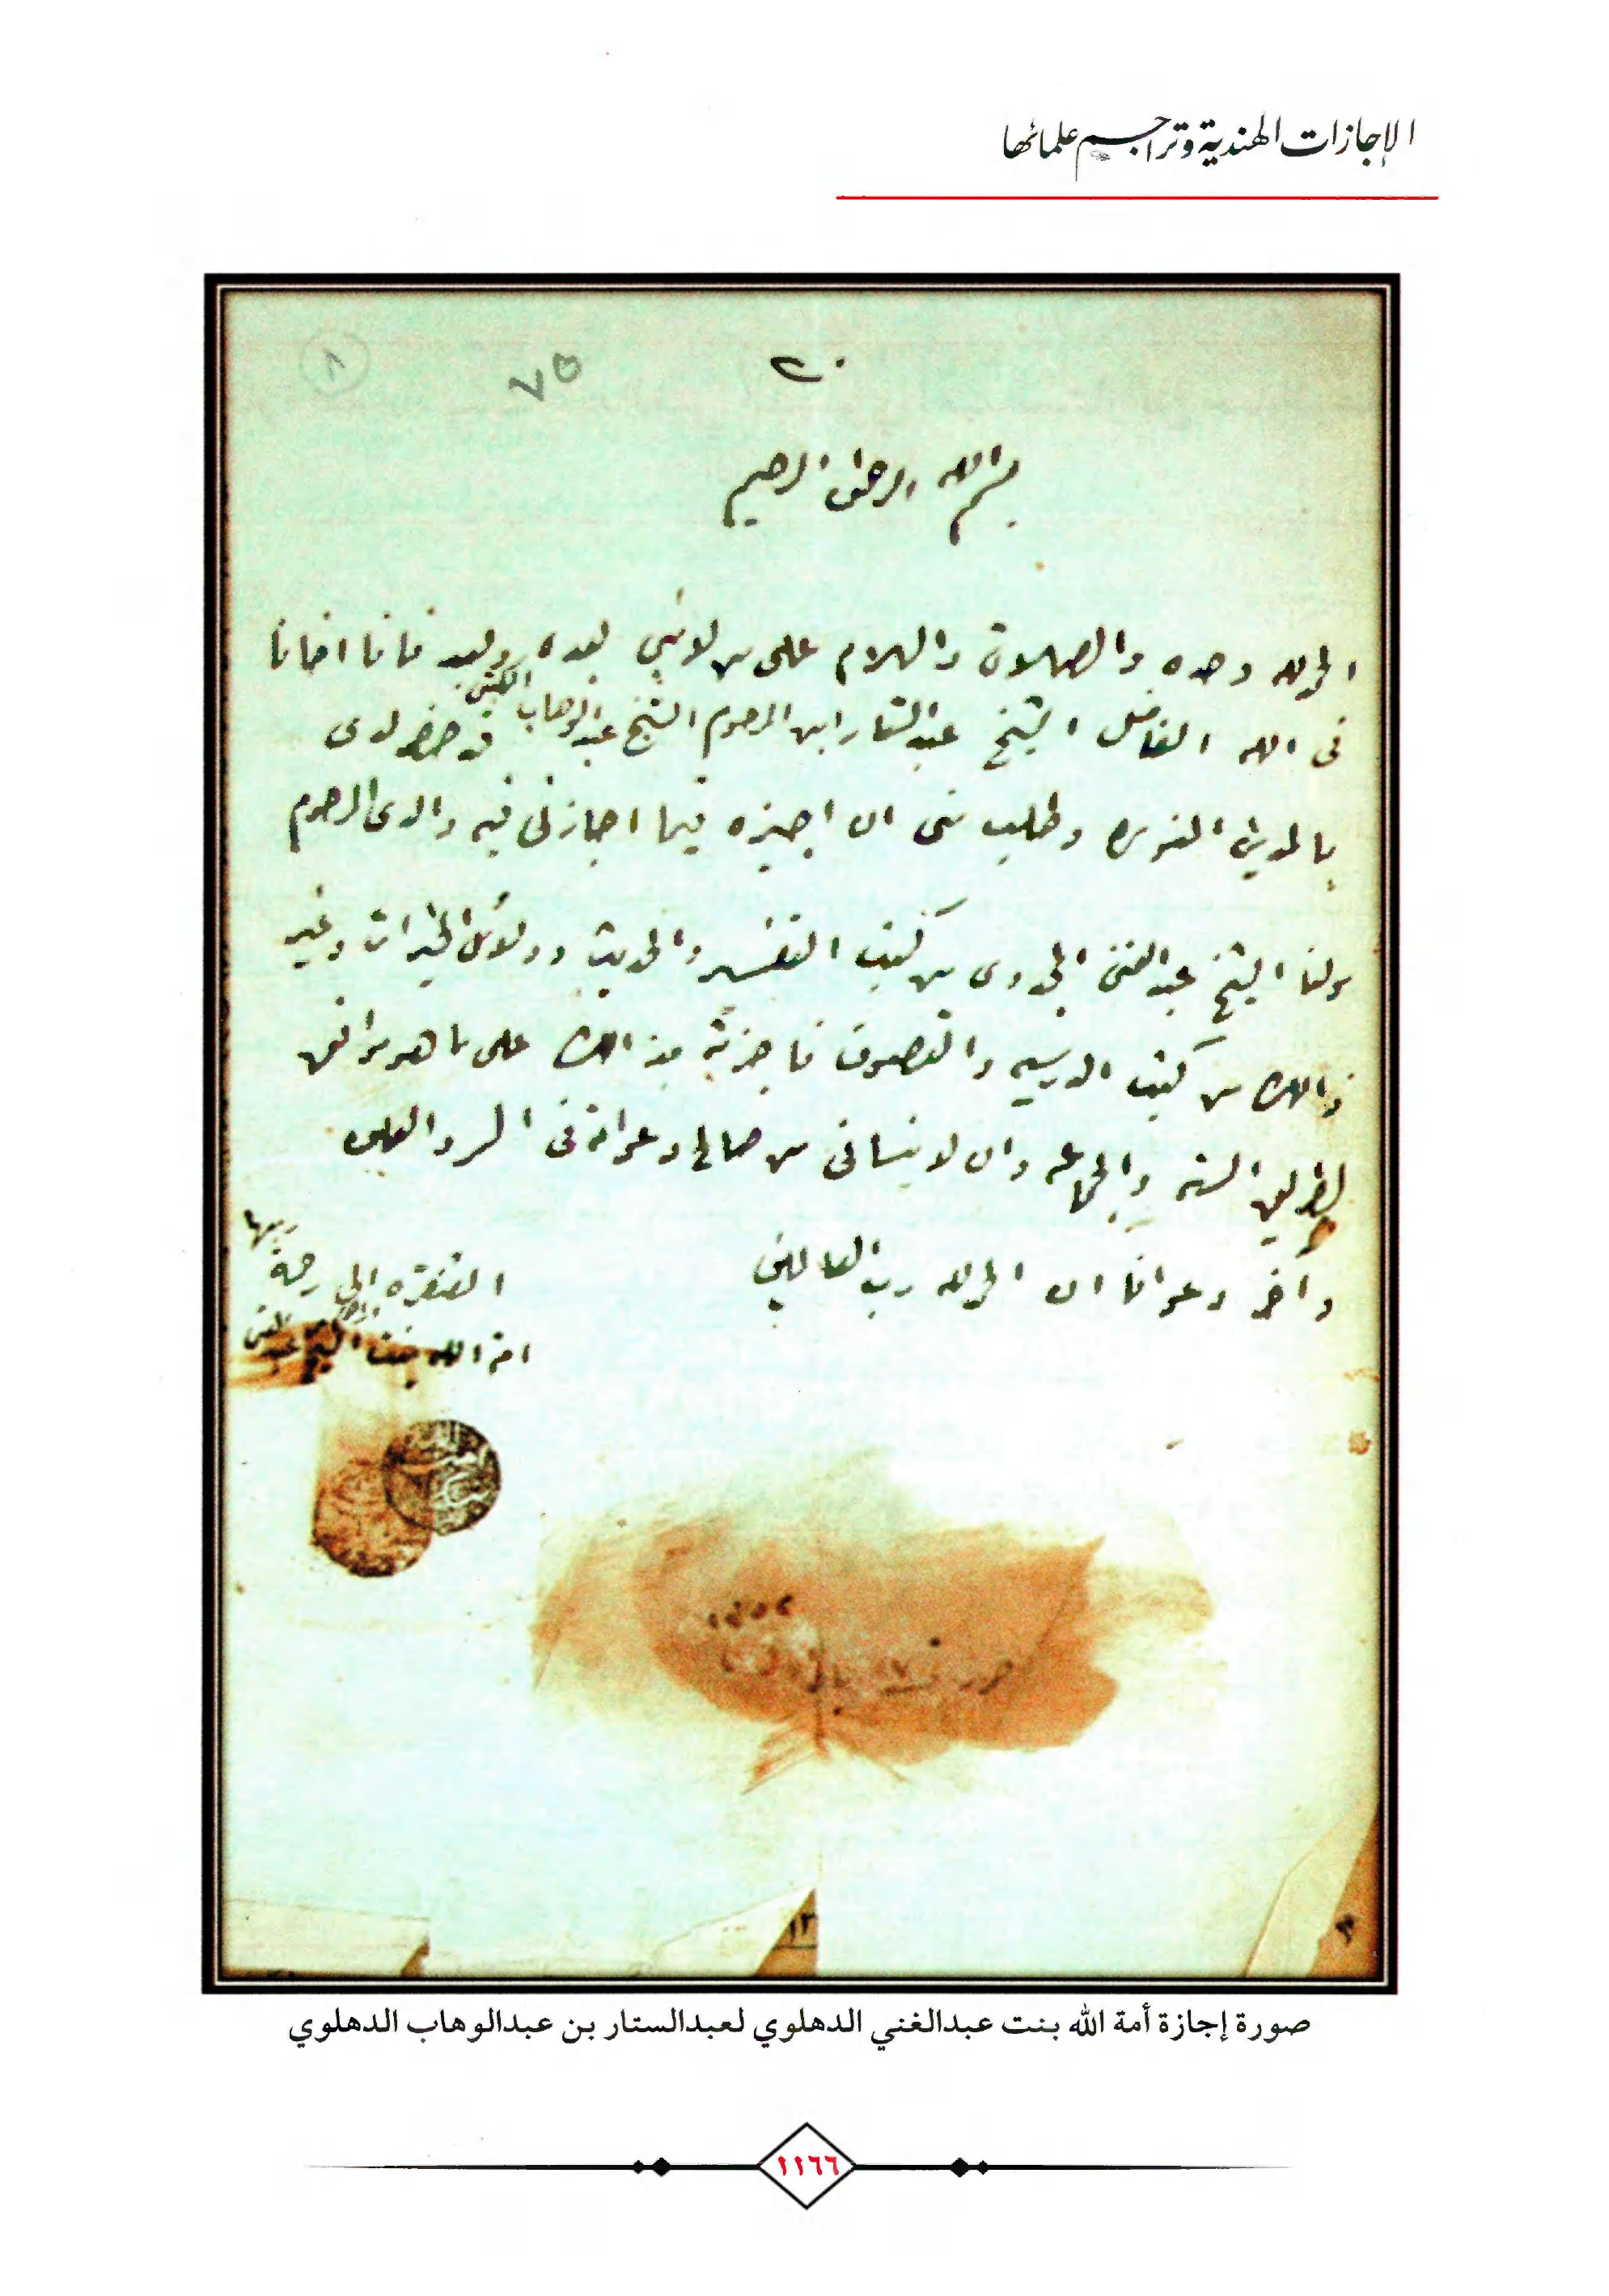 الإجازات الهندية وتراجم علمائها
٨
٧٥
بسم الله الرحمن الرحيم
الحمد لله وحده والصلاة والسلام على من لا نبي بعده وبعد فانا اخانا
فى الله الفاضل الشيخ عبد الستار ابن المرحوم الشيخ عبد الوهاب الكتبى قد حضر لدى
بالمدينة المنوره وطلب منى ان اجيزه فيما اجازنى فيه والدى المرحوم
مولنا الشيخ عبد الغنى المجددى من كتب التفسير والحديث ودلائل الخيرات وغير
ذالك من كتب الدرسيه والتصوف فاجزته بذالك على ما هو موافق
لطريق السنه والجماعه وان لا ينسانى من صالح دعواته فى السر والعلن
وآخر دعوانا ان الحمد لله رب العالمين
المفتقره الى رحمة ربها
امة الله بنت الشيخ عبد الغنى
حرر فى
١٢
صورة إجازة أمة الله بنت عبدالغني الدهلوي لعبدالستار بن عبدالوهاب الدهلوي
١١٦٦